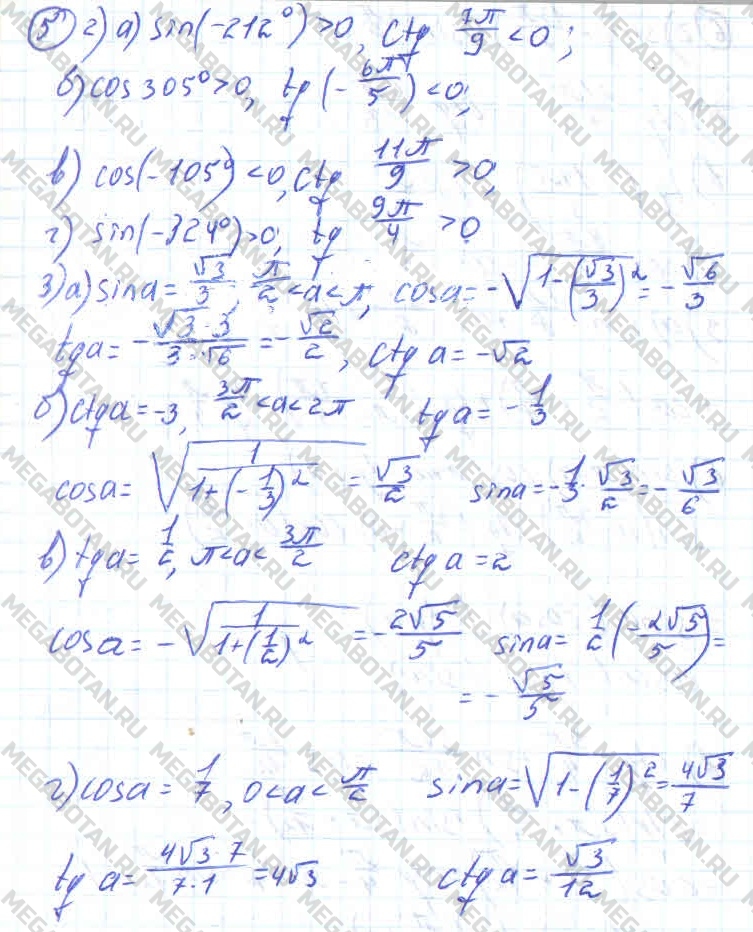 5 2) а) sin(-212°)>0, ctg 7π/9 <0;
б) cos 305°>0, tg (-6π/5) <0;
в) cos(-105°) <0, ctg 11π/9 >0,
г) sin(-324°)>0, tg 9π/4 >0
3) а) sina = √3/3, π/2 <a<π, cosa = -√(1-(√3/3)²) = -√6/3
tga = -√3·3/3·√6 = -√2/2, ctg a = -√2
б) ctga = -3, 3π/2 <a<2π tga = -1/3
cosa = √(1/(1+(-1/3)²)) = √3/2 sina = -1/3·√3/2 = -√3/6
в) tga = 1/2, π<a< 3π/2 ctg a = 2
cosa = -√(1/(1+(1/2)²)) = -2√5/5 sina = 1/2(-2√5/5) =
= -√5/5
г) cosa = 1/7, 0<a< π/2 sina = √(1-(1/7)²) = 4√3/7
tg a = 4√3·7/7·1 = 4√3 ctg a = √3/12
MEGABOTAN.RU